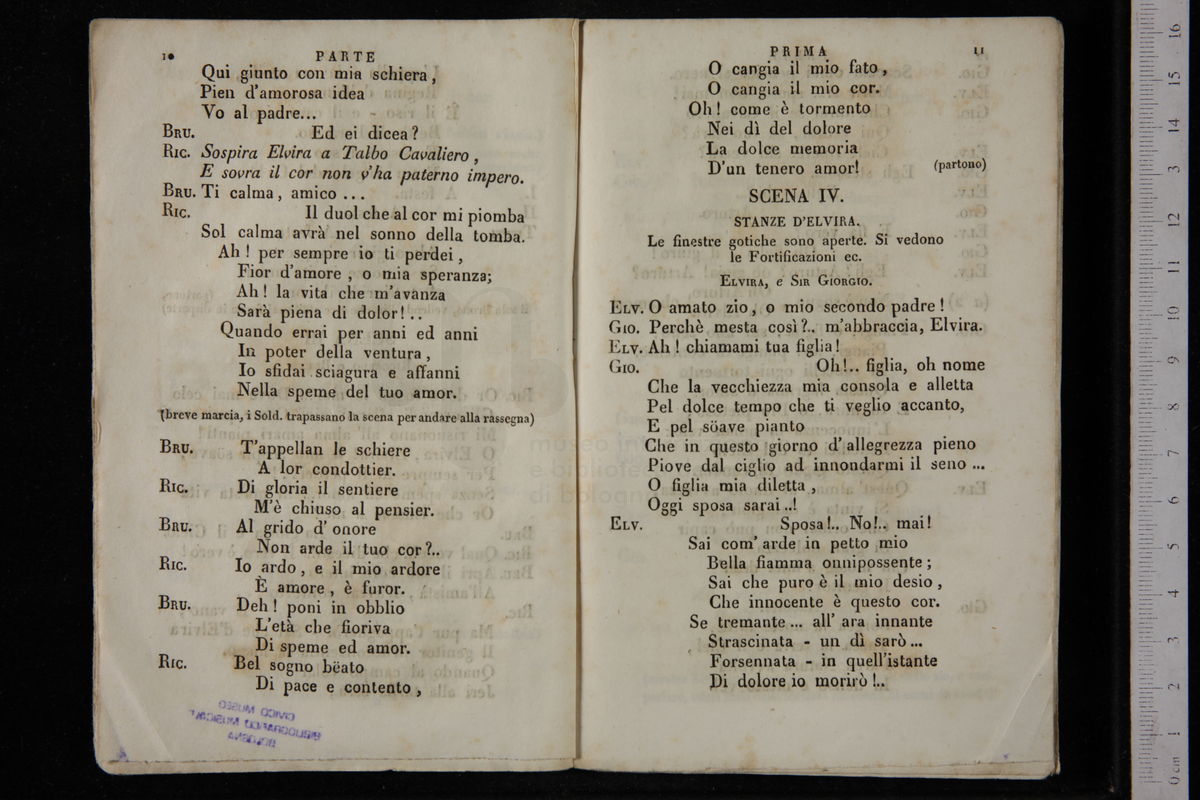 10 PARTE
Qui giunto con mia schiera,
Pien d'amorosa idea
Vo al padre...
BRU. Ed ei dicea?
RIC. Sospira Elvira a Talbo Cavaliero,
E sovra il cor non v'ha paterno impero.
BRU. Ti calma, amico ...
RIC. Il duol che al cor mi piomba
Sol calma avrà nel sonno della tomba.
Ah! per sempre io ti perdei,
Fior d'amore, o mia speranza;
Ah! la vita che m'avanza
Sarà piena di dolor!..
Quando errai per anni ed anni
In poter della ventura,
Io sfidai sciagura e affanni
Nella speme del tuo amor.
(breve marcia, i Sold. trapassano la scena per andare alla rassegna)
BRU. T'appellan le schiere
A lor condottier.
RIC. Di gloria il sentiere
M'è chiuso al pensier.
BRU. Al grido d' onore
Non arde il tuo cor?..
RIC. Io ardo, e il mio ardore
È amore, è furor.
BRU. Deh! poni in obblio
L'età che fioriva
Di speme ed amor.
RIC. Bel sogno bëato
Di pace e contento,
CIVICO MUSEO
BIBLIOGRAFICO MUSICALE
BOLOGNA
PRIMA 11
O cangia il mio fato,
O cangia il mio cor.
Oh! come è tormento
Nei dì del dolore
La dolce memoria
D'un tenero amor! (partono)
SCENA IV.
STANZE D'ELVIRA.
Le finestre gotiche sono aperte. Si vedono
le Fortificazioni ec.
ELVIRA, e SIR GIORGIO.
ELV. O amato zio, o mio secondo padre!
GIO. Perchè mesta così?.. m'abbraccia, Elvira.
ELV. Ah! chiamami tua figlia!
GIO. Oh!.. figlia, oh nome
Che la vecchiezza mia consola e alletta
Pel dolce tempo che ti veglio accanto,
E pel söave pianto
Che in questo giorno d' allegrezza pieno
Piove dal ciglio ad innondarmi il seno ...
O figlia mia diletta,
Oggi sposa sarai ..!
ELV. Sposa!.. No!.. mai!
Sai com' arde in petto mio
Bella fiamma onnipossente;
Sai che puro è il mio desio,
Che innocente è questo cor.
Se tremante ... all' ara innante
Strascinata - un dì sarò ...
Forsennata - in quell'istante
Di dolore io morirò!..